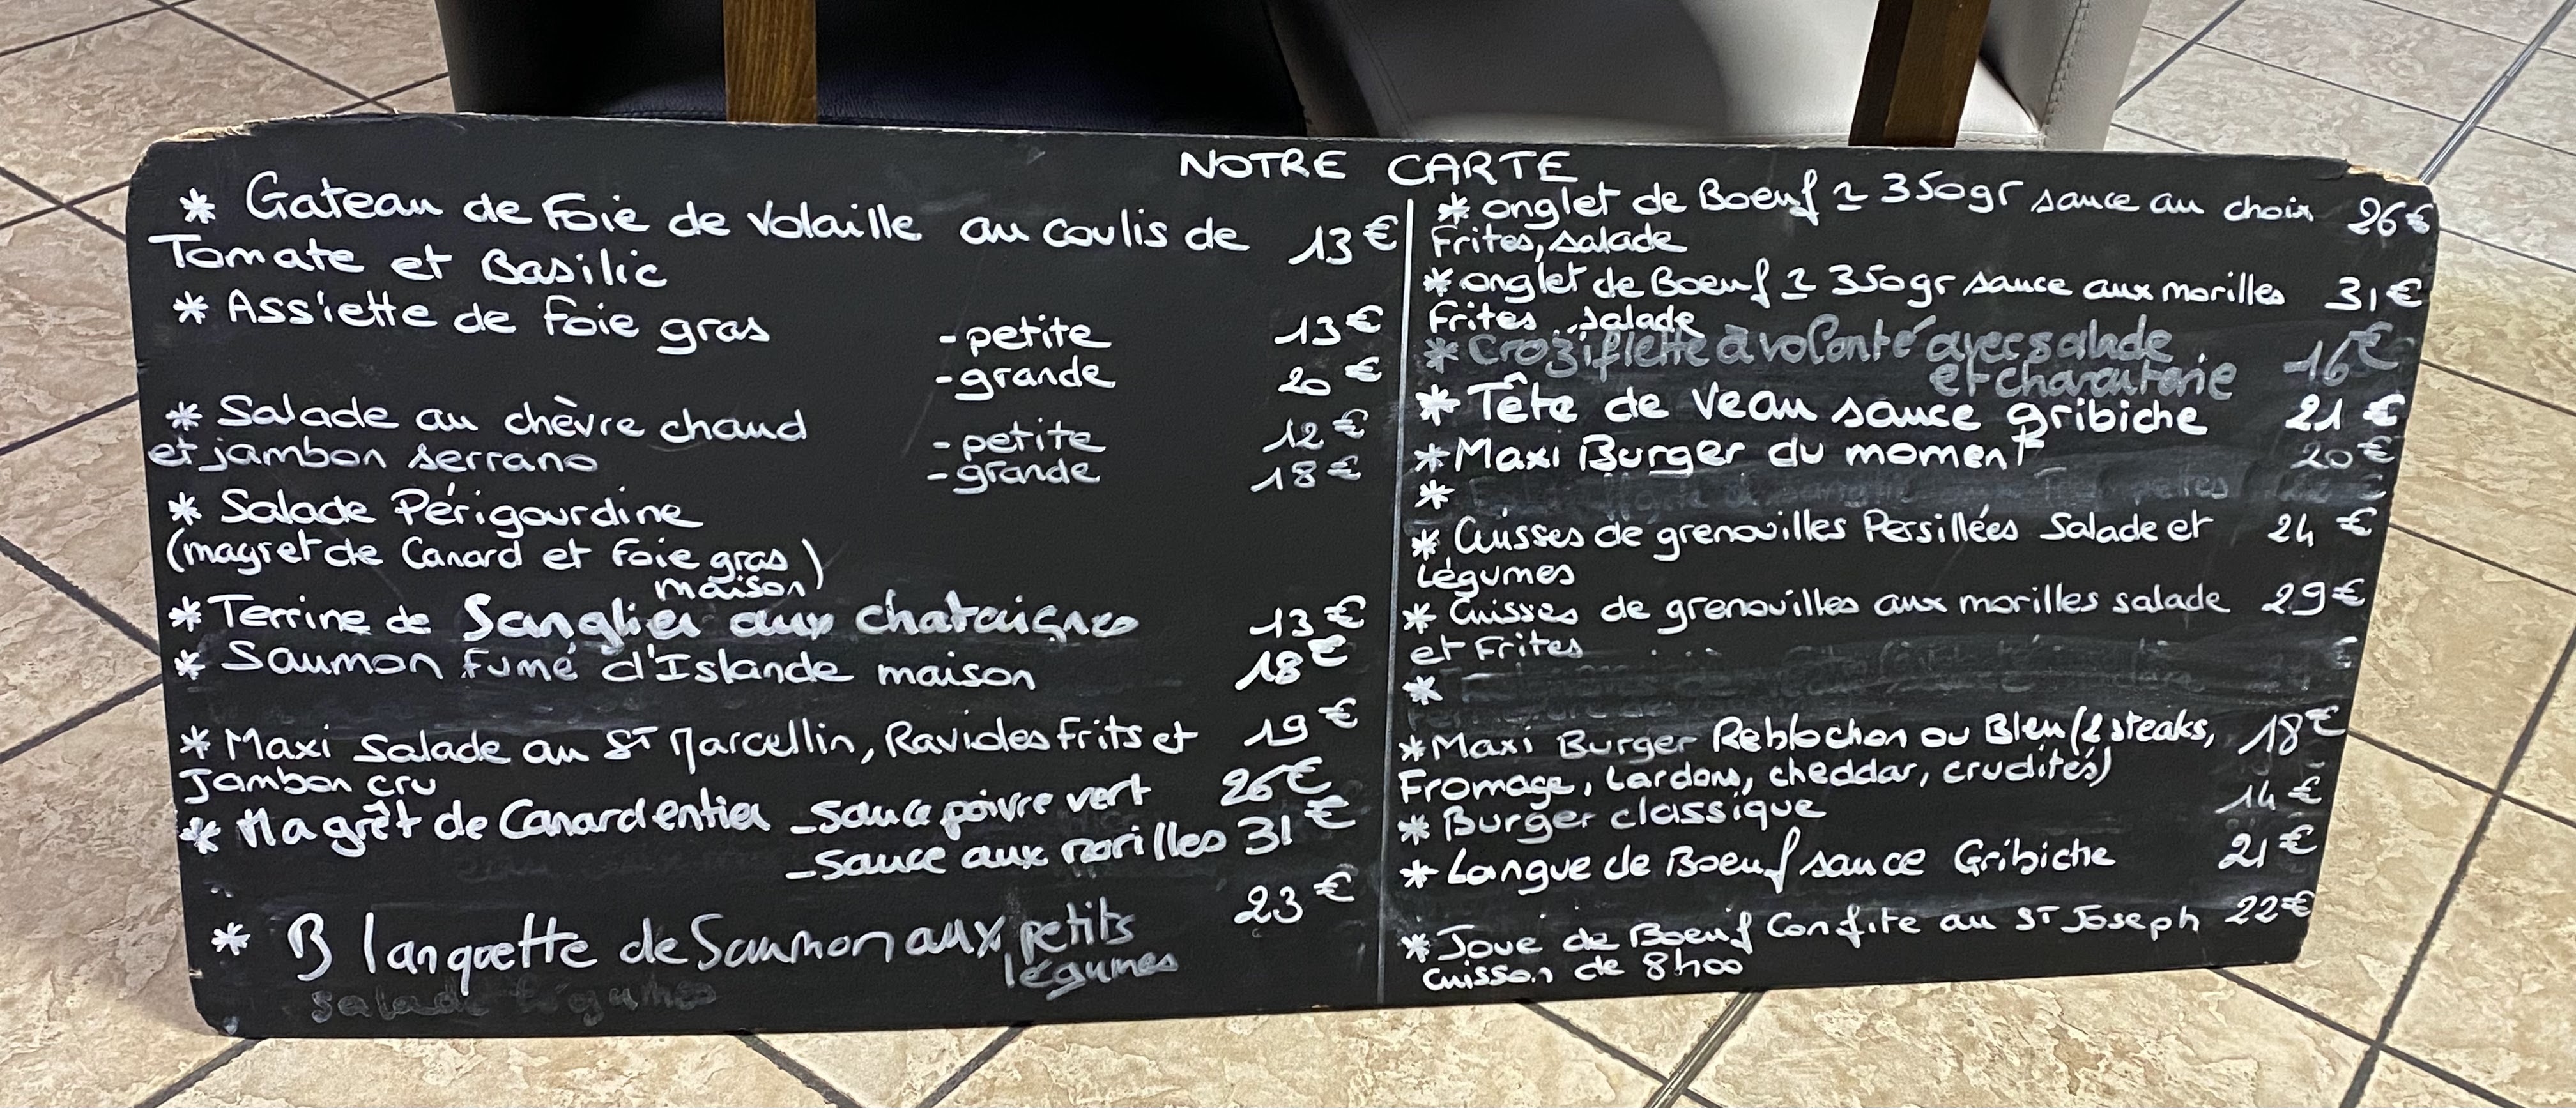 NOTRE CARTE
* Gateau de Foie de Volaille au coulis de 13€
Tomate et Basilic
* Assiette de Foie gras -petite 13€
-grande 20€
* Salade au chèvre chaud -petite 12€
et jambon serrano -grande 18€
* Salade Périgourdine
(magret de Canard et Foie gras)
maison
* Terrine de Sanglier aux chataignes 13€
* Saumon Fumé d'Islande maison 18€
* Maxi Salade au ST Marcellin, Ravioles Frits et 19€
Jambon cru
* Magrêt de Canard entier -sauce poivre vert 26€
-sauce aux morilles 31€
23€
* Blanquette de Saumon aux petits
légumes
salade légumes
* onglet de Boeuf ± 350gr sauce au choix 26€
Frites, salade
* onglet de Boeuf ± 350gr sauce aux morilles 31€
Frites, salade
* Croziflette à volonté avec salade 16€
et charcuterie
* Tête de Veau sauce gribiche 21€
* Maxi Burger du moment 20€
*
* Cuisses de grenouilles Persillées Salade et 24€
Légumes
* Cuisses de grenouilles aux morilles salade 29€
et Frites €
*
* Maxi Burger Reblochon ou Bleu (2 steaks, 18€
Fromage, Lardons, cheddar, crudités)
* Burger classique 14€
* Langue de Boeuf sauce Gribiche 21€
* Joue de Boeuf Confite au ST Joseph 22€
cuisson de 8h00